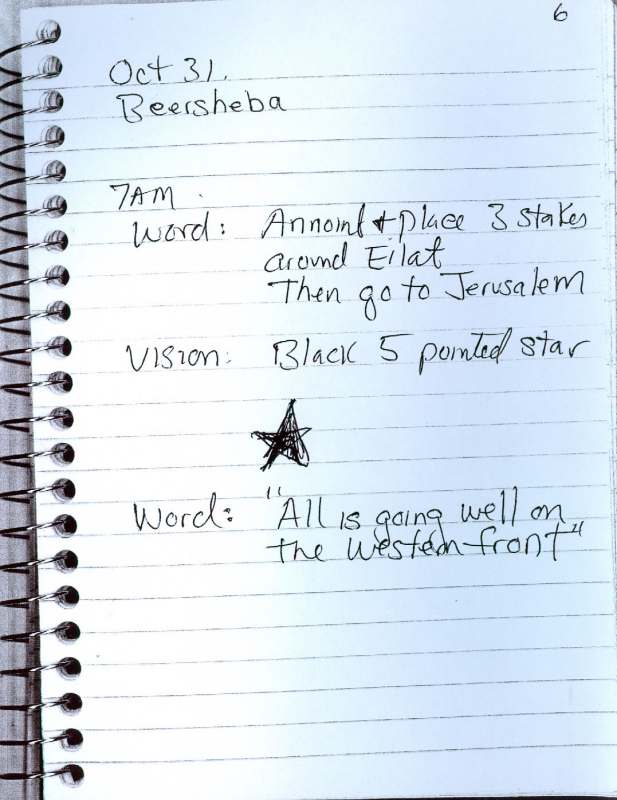 6
Oct 31.
Beersheba
7AM.
Word: Annoint + place 3 stakes
around Eilat
Then go to Jerusalem
Vision: Black 5 pointed star
Word: "All is going well on
the western front"